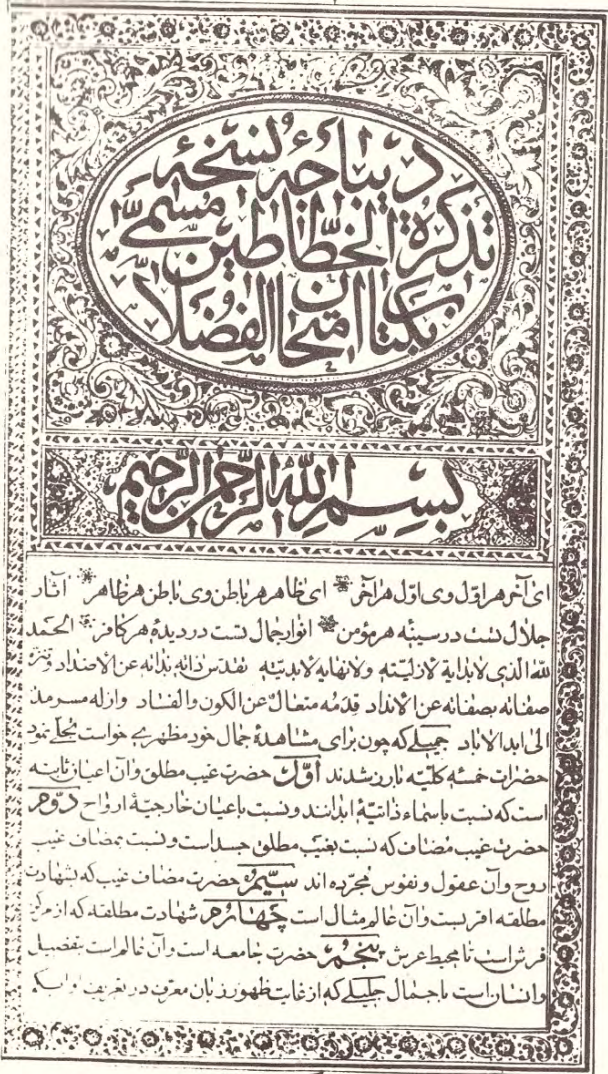 دیباجهٔ نسخهٔ
تذکرة الخطاطین مسمی
بکتاب امتحان الفضلا
بسم الله الرحمن الرحیم
ای آخر هر اول وی اول هر آخر ای ظاهر هر باطن وی باطن هر ظاهر آثار
جلال تست در سینه هر مؤمن انوار جمال تست در دیدهٔ هر کافر الحمد
لله الذی لا بدایة لازلیته ولا نهایة لابدیته تقدس ذاته بذاته عن الاضداد و تنزه
صفاته بصفاته عن الانداد قدمه متعال عن الکون والفساد وازله سرمد
الی ابد الاباد جمیلے که چون برای مشاهدهٔ جمال خود مظهرے خواست تجلے نمود
حضرات خمسهٔ کلیه بارز شدند اول حضرت غیب مطلق وآن اعیان ثابته
است که نسبت باسماء ذاتیهٔ ابدانند و نسبت باعیان خارجیهٔ ارواح دوم
حضرت غیب مضاف که نسبت بغیب مطلق جسد است و نسبت بمضاف غیب
روح وآن عقول و نفوس مجرده اند سیم حضرت مضاف غیب که بشهادت
مطلقه اقربست وآن عالم مثال است چهارم شهادت مطلقه که از مرکز
فرش است تا محیط عرش پنجم حضرت جامعه است وآن عالم است بتفصیل
وانسان است باجمال جلیلے که از غایت ظهور زبان معرف در تعریف او ابکم